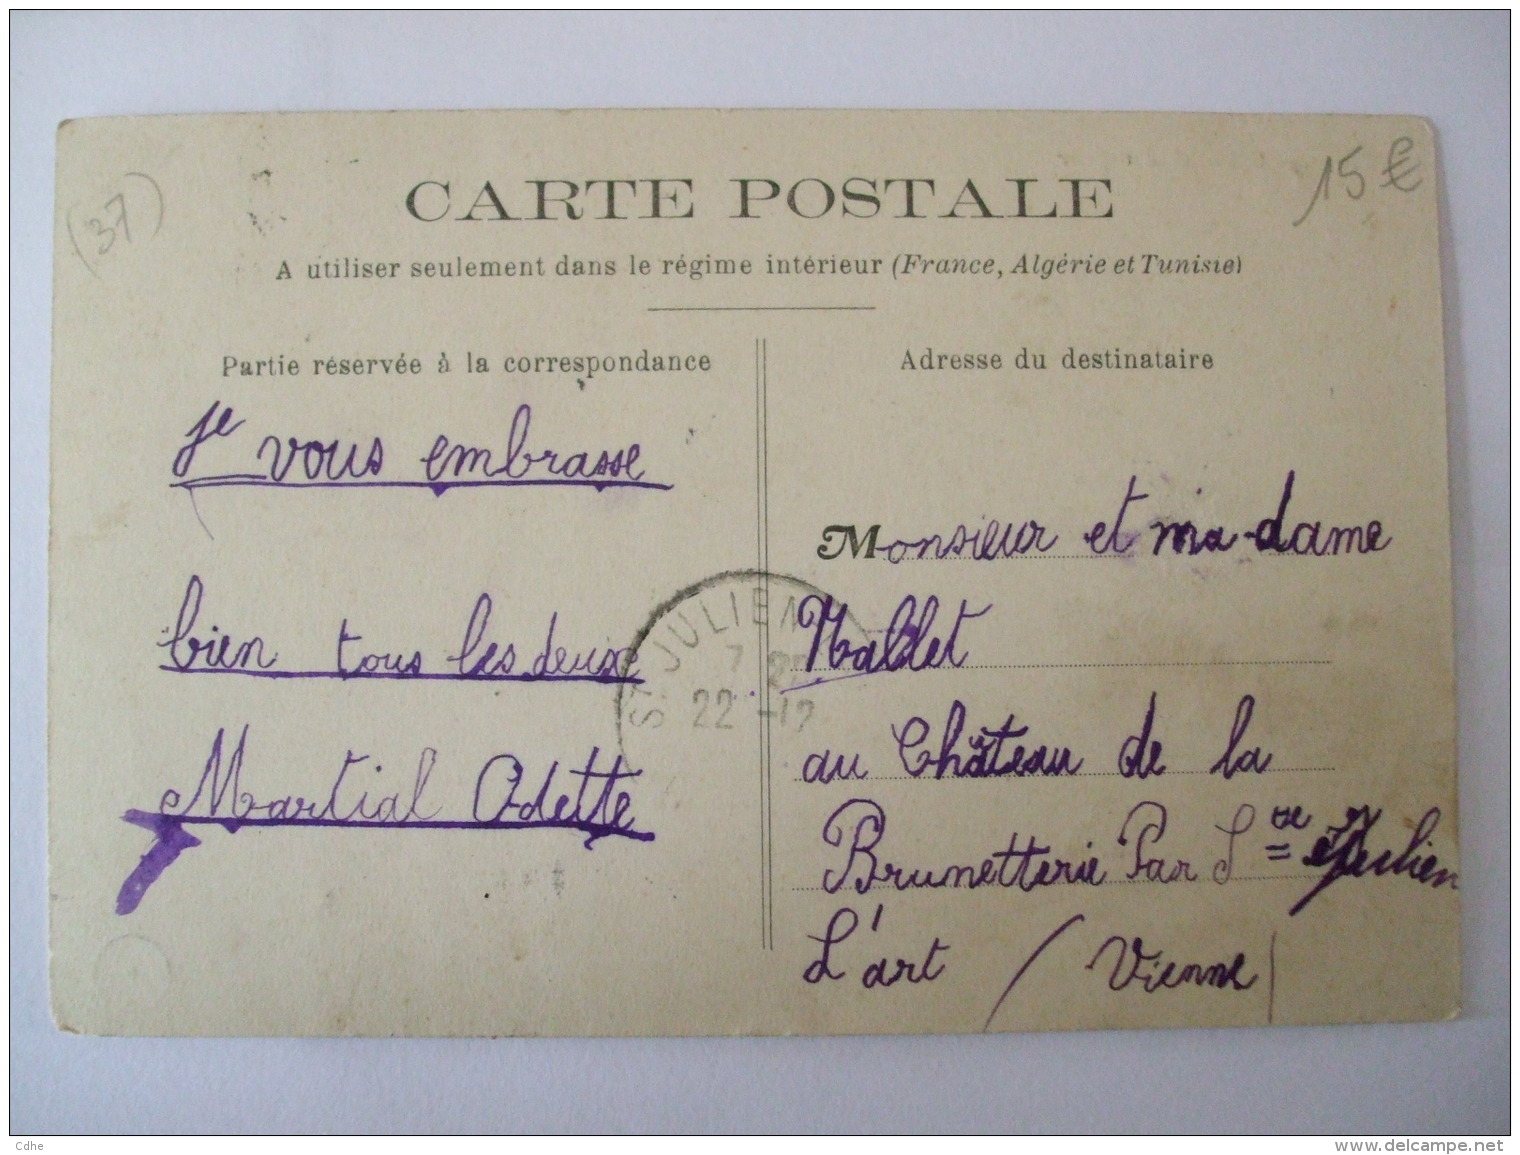 (37)
15 €
CARTE POSTALE
A utiliser seulement dans le régime intérieur (France, Algérie et Tunisie)
Partie réservée à la correspondance
je vous embrasse
bien tous les deux
Martial Odette
ST JULIEN
22 -12
Adresse du destinataire
Monsieur et ma-dame
Mallet
au Château de la
Brunetterie Par S Julien
L'art / Vienne
Cdhe
www.delcampe.net